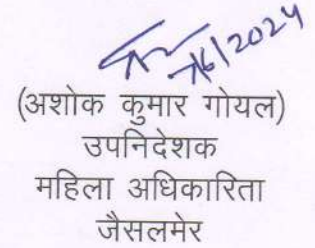 7/6/2024
(अशोक कुमार गोयल)
उपनिदेशक
महिला अधिकारिता
जैसलमेर